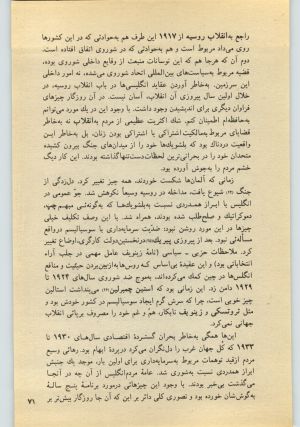 راجع به‌انقلاب روسیه از ۱۹۱۷ این طرف هم به‌حوادثی که در این کشورها
روی می‌داد مربوط است و هم به‌حوادثی که در شوروی اتفاق افتاده است.
دوم آن که هرجا هم که این نوسانات منبعث از وقایع داخلی شوروی بوده،
قضیه مربوط به‌سیاست‌های بین‌المللی اتحاد شوروی می‌شده، نه امور داخلی
این سرزمین. به‌خاطر آوردن عقاید انگلیسی‌ها در باب انقلاب روسیه، در
خلال اولین سال پیروزی آن انقلاب، آسان نیست. در آن روزگار چیزهای
فراوان دیگری برای اندیشیدن وجود داشت. با وجود این در یک مورد می‌توانم
به‌حافظه‌ام اطمینان کنم. شك اکثریت عظیمی از مردم به‌انقلاب نه به‌خاطر
قضایای مربوط به‌مالکیت اشتراکی یا اشتراکی بودن زنان، بل به‌خاطر این
واقعیت دردناك بود که بلشویك‌ها خود را از میدان‌های جنگ بیرون کشیده
متحدان خود را در بحرانی‌ترین لحظات دست‌تنها گذاشته بودند. این کار دیگ
خشم مردم را به‌جوش آورده بود.
زمانی که آلمان‌ها شکست خوردند، همه چیز تغییر کرد. دل‌زدگی از
جنگ شیوع یافت. مداخله در روسیه وسیعاً نکوهش شد. جو عمومی در
انگلیس با ابراز همدردی نسبت به‌بلشویك‌ها که به‌گونه‌ئی مبهم چپ،
دموکراتیك و صلح‌طلب شده بودند، همراه شد. با این وصف تکلیف خیلی
چیزها در این مورد روشن نبود: ضدّیت سرمایه‌داری با سوسیالیسم درواقع
مسأله‌ئی نبود. بعد از پیروزی درنخستین دولت کارگری، اوضاع تغییر
کرد. ملاحظات حزبی - سیاسی (نامهٔ زینویف عامل مهمی در جلب آراء
انتخاباتی بود) و این عقیدهٔ بی‌اساس که روس‌ها به‌ازبین‌بردن حیثیت و منافع
انگلیس‌ها در چین کمك می‌کرده‌اند، به‌موج ضد شوروی سال‌های ۱۹۲۴ تا
۱۹۲۹ دامن زد. این زمانی بود که استین چمبرلین می‌پنداشت استالین
چیز خوبی است، چرا که سرش گرم ایجاد سوسیالیسم در کشور خودش بود و
مثل تروتسکی و زینویف نابکار، هم و غم خود را مصروف برپائی انقلاب
جهانی نمی‌کرد.
این‌ها همگی به‌خاطر بحران گستردهٔ اقتصادی سال‌های ۱۹۳۰ تا
۱۹۳۳ که کل جهان غرب را دل‌نگران می‌کرد دربردهٔ ابهام بود. رهائی وسیع
مردم ازقید توهمات مربوط به‌سرمایه‌داری برای اولین بار، موجد یك جنبش
ابراز همدردی نسبت به‌شوروی شد. عامهٔ مردم‌انگلیس از آن چه در آنجا
می‌گذشت بی‌خبر بودند. با وجود این چیزهائی درمورد برنامهٔ پنج ساله
به‌گوش‌شان خورده بود و تصوری کلی دائر بر این که آن جا روزگار بیش‌تر بر
۷۱